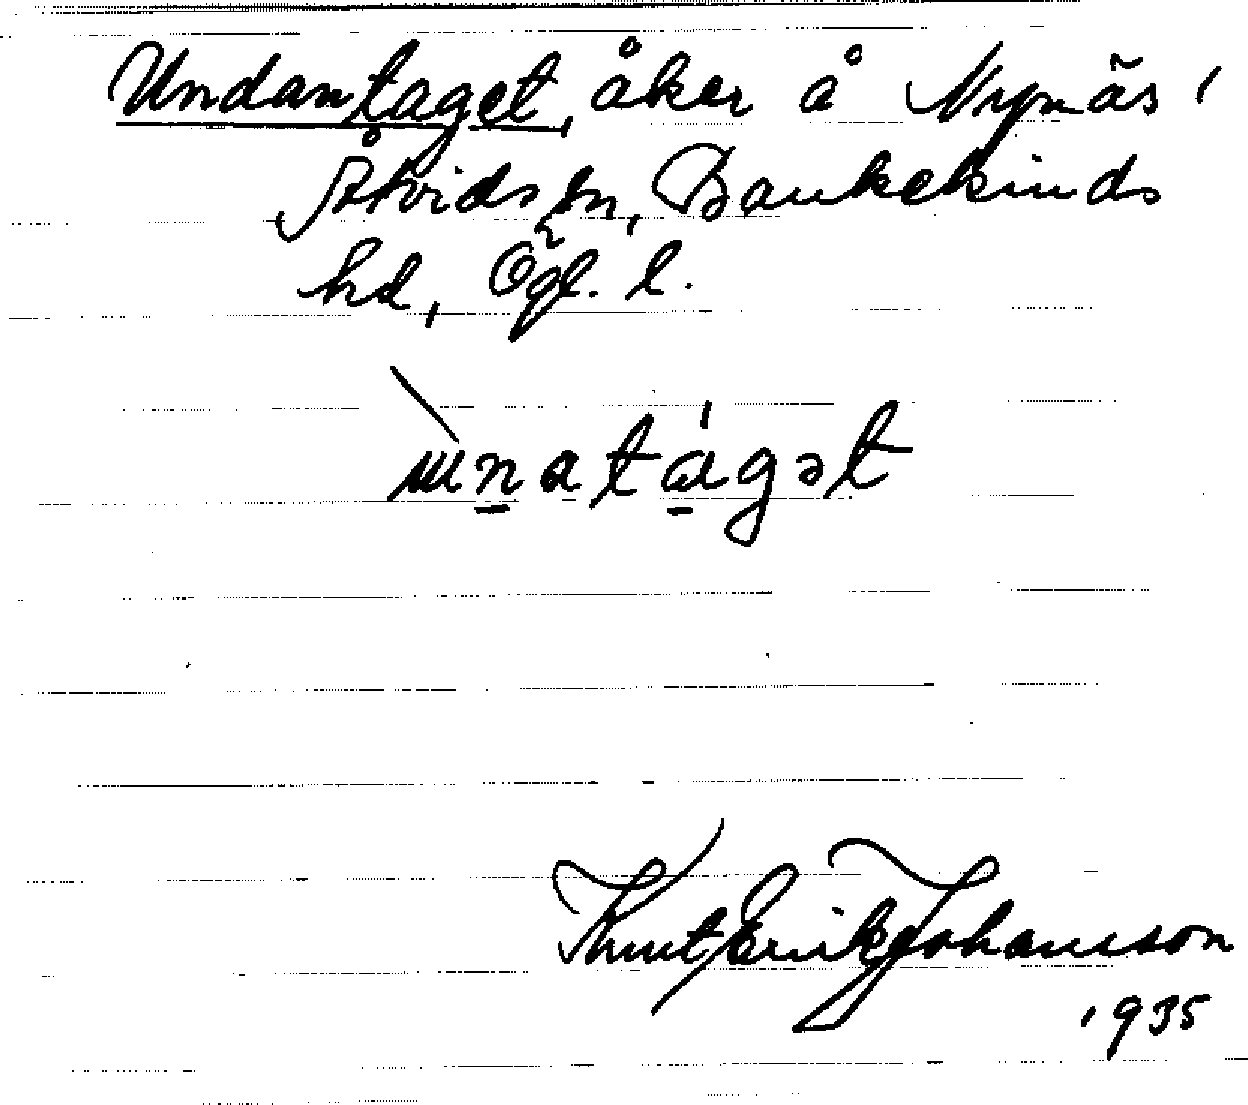 Undantaget, åker å Nynäs,
Åtvids sn, Bankekinds
hd, Ögl. l.
unatágət
Knut Erik Johansson
1935